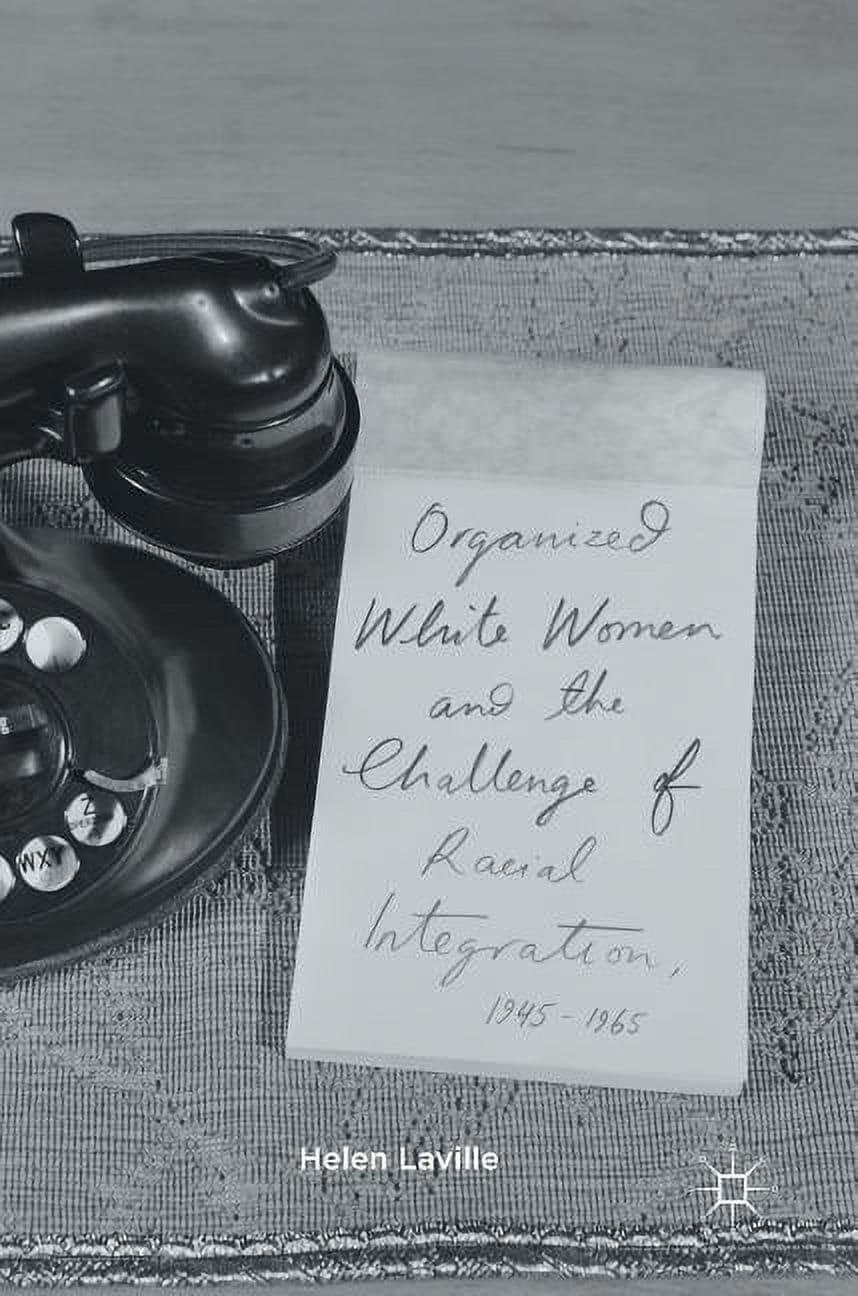 Z
WXY
Organized
White Women
and the
Challenge of
Racial
Integration,
1945-1965
Helen Laville